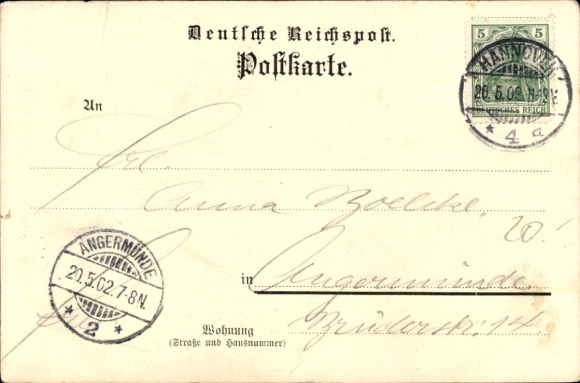 Deutsche Reichspost.
Postkarte.
5 5
DEUTSCHES REICH
HANNOVER
20.5.02. 11-12V.
* 4 a
An
Frl.
Anna Boelcke,
20!
ANGERMÜNDE
20.5.02.7-8N.
* 2 *
in Angermünde.
Wohnung
(Straße und Hausnummer)
Brüderstr. 14.